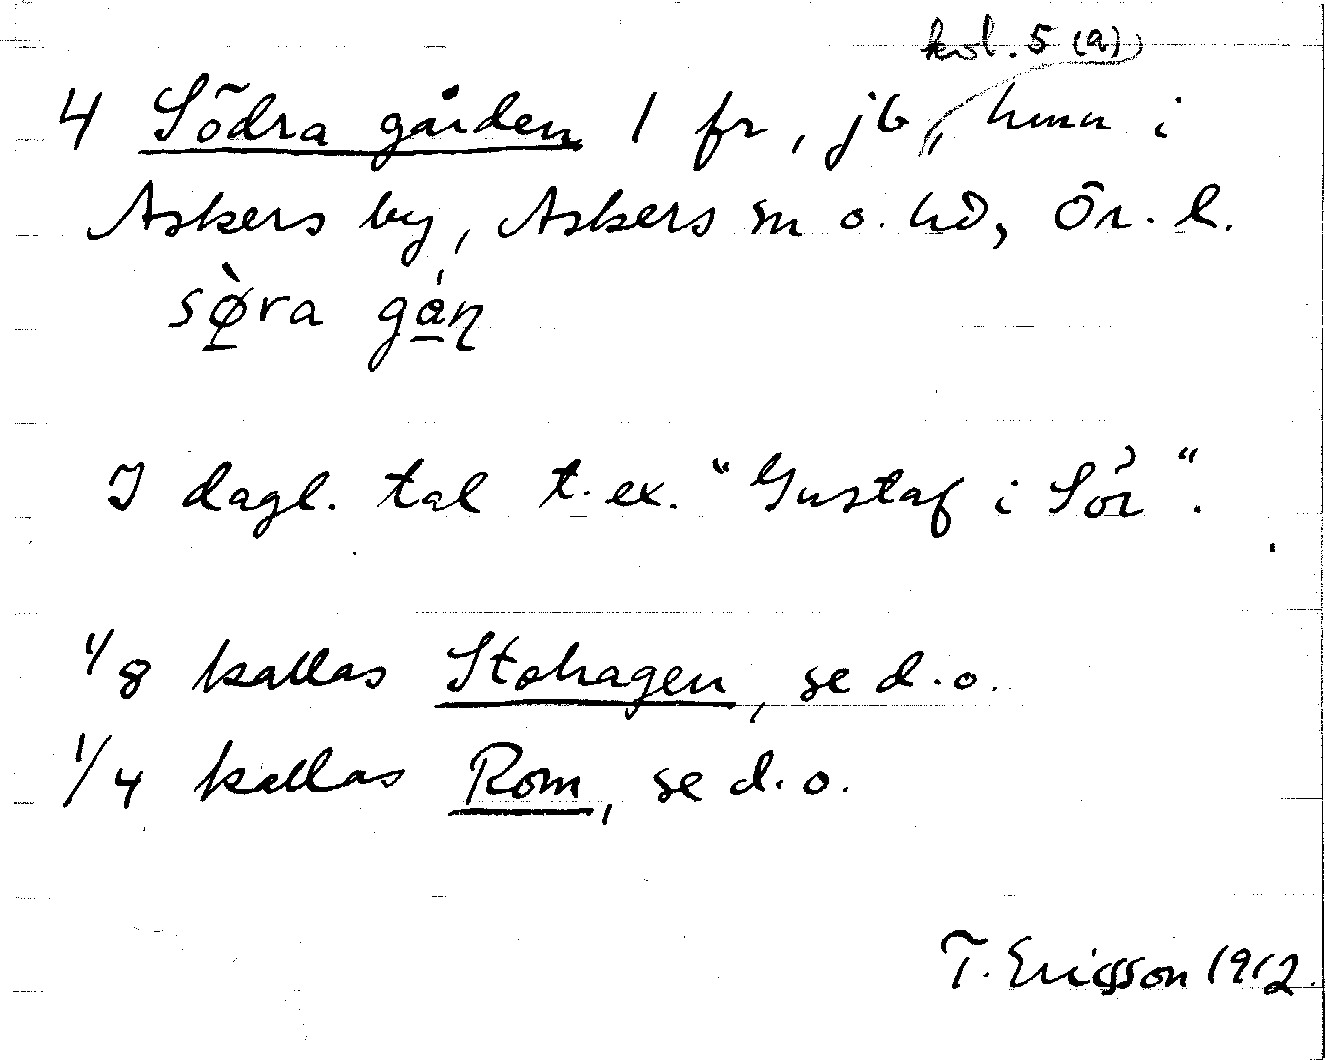 kol. 5 (a)
4 Södra gården 1 fr, jb, hmn i
Askers by, Askers sn o. hd, Ör. l.
sø̀ra gáɳ
I dagl. tal t.ex. "Gustaf i Sör".
1/8 kallas Stohagen, se d.o.
1/4 kallas Rom, se d.o.
T. Ericsson 1912.